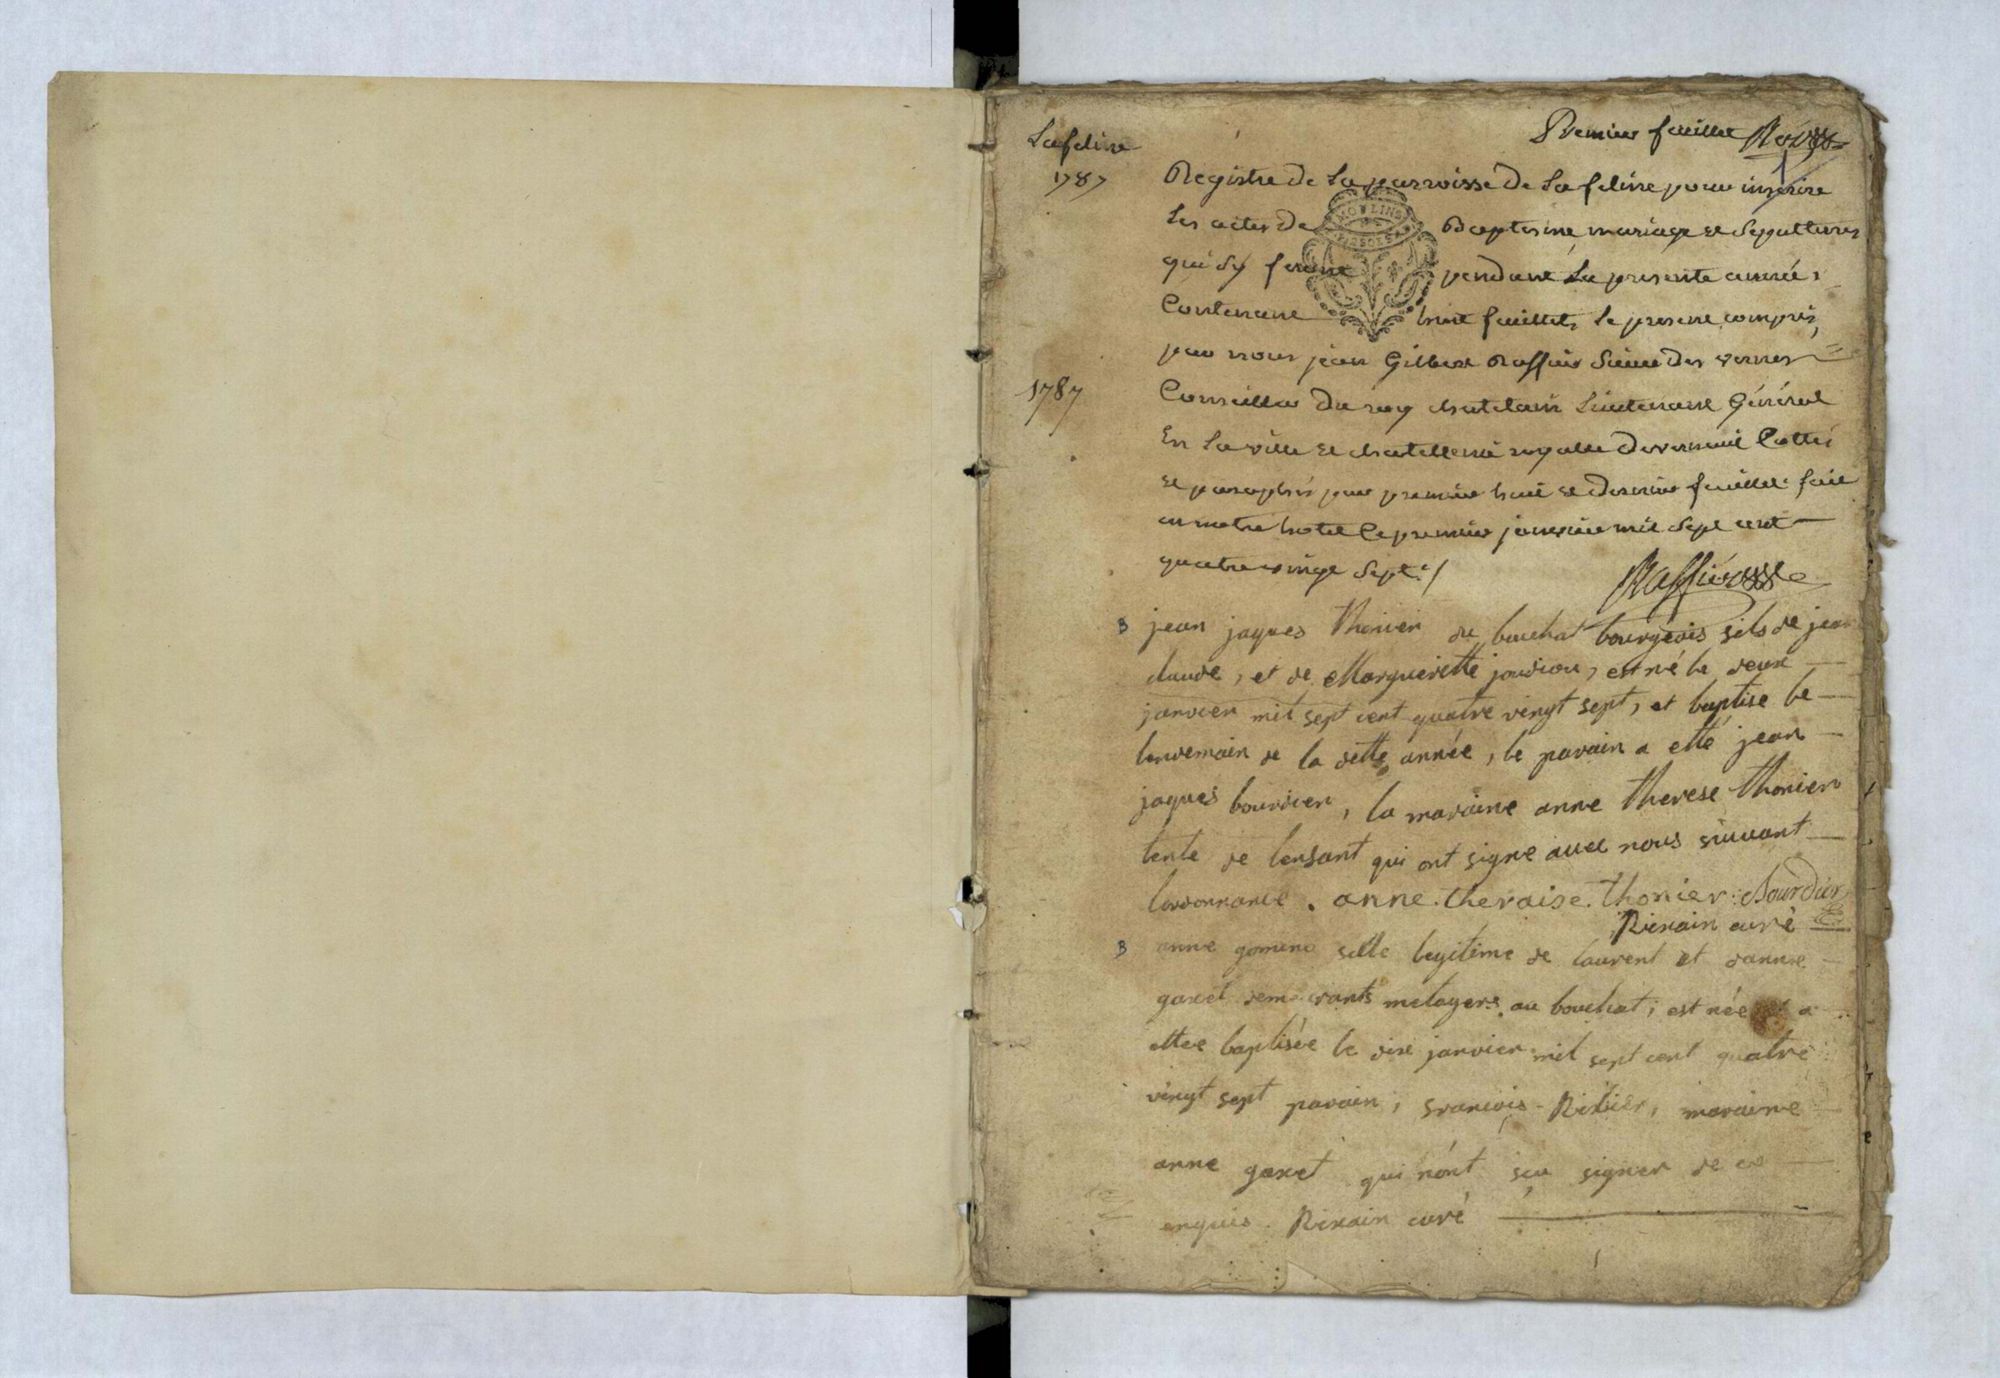 Premier feuillet
Lafeline
1787
Registre de La parroisse de Lafeline pour inscrire
Les actes de Baptesme mariage et Sepultures
qui sy feront pendant La presente année,
MOULINS
Contenant huit feuillets le present compris,
par nous jean Gilbert Raffier Sieur des vernes
1787
Conseiller du roy chatelain Lieutenant Général
En La ville et chatellenie royalle de verneuil Cottés
et paraphés par premier huit et dernier feuillet fait
en notre hotel Le premier janvier mil Sept cent
quatre vingt Sept ./
B jean jaques Thonier du bouchat bourgeois fils de jean
claude, et de Marguerite jourdiou, est né le deux
janvier mil sept cent quatre vingt sept, et baptise le
lendemain de la ditte année, le parain a etté jean
jaques bourdier, la maraine anne therese thonier
tente de lenfant qui ont signe avec nous suivant
lordonnance. anne. theraise. thonier. Bourdier
Rixain curé
B anne gomine fille legitime de laurent et danne
gaxet demeurants metayers au bouchat, est née a
ettee baptisée le dixe janvier mil sept cent quatre
vingt sept parain, francois Rixier, maraine
anne gaxet qui n'ont sçu signer de ce
enquis. Rixain curé